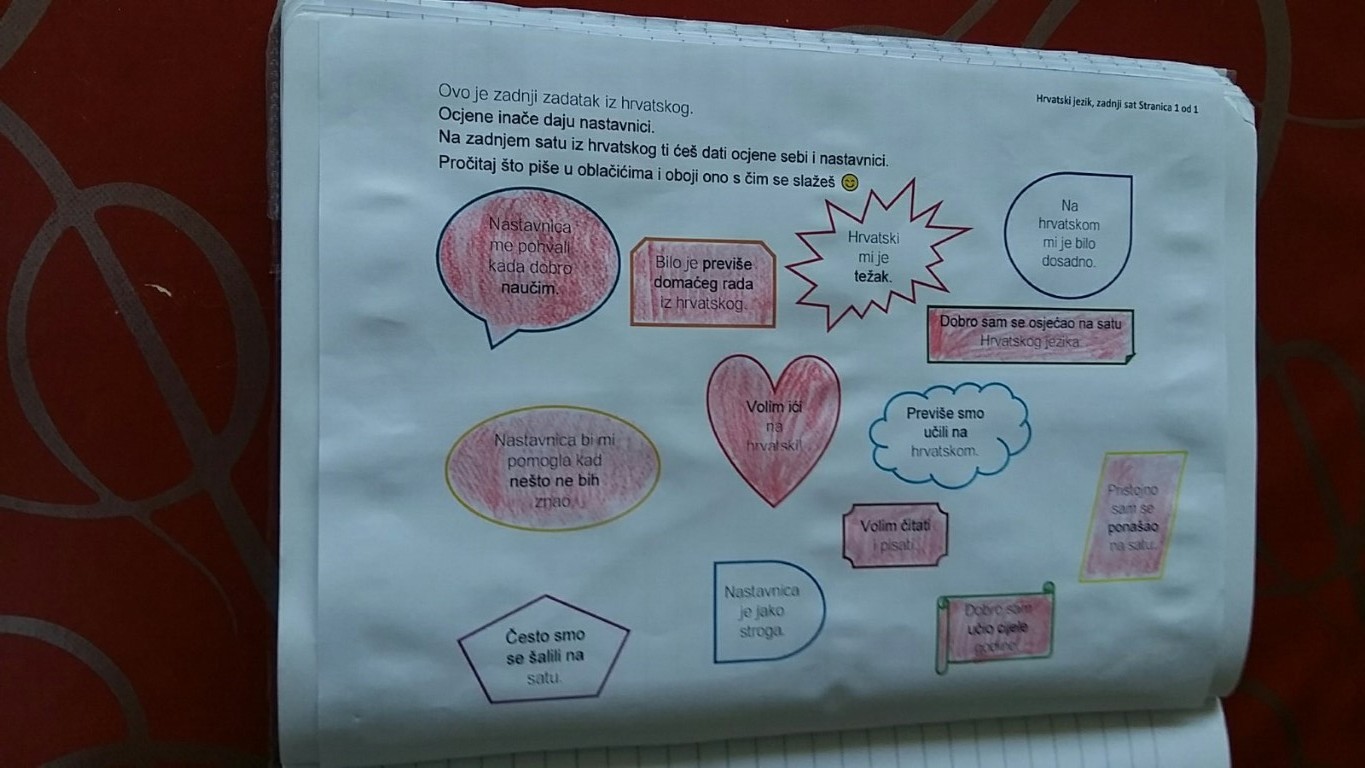 Hrvatski jezik, zadnji sat Stranica 1 od 1
Ovo je zadnji zadatak iz hrvatskog.
Ocjene inače daju nastavnici.
Na zadnjem satu iz hrvatskog ti ćeš dati ocjene sebi i nastavnici.
Pročitaj što piše u oblačićima i oboji ono s čim se slažeš 😊
Nastavnica
me pohvali
kada dobro
naučim.
Bilo je previše
domaćeg rada
iz hrvatskog.
Hrvatski
mi je
težak.
Na
hrvatskom
mi je bilo
dosadno.
Dobro sam se osjećao na satu
Hrvatskog jezika.
Nastavnica bi mi
pomogla kad
nešto ne bih
znao.
Volim ići
na
hrvatski!
Previše smo
učili na
hrvatskom.
Volim čitati
i pisati.
Pristojno
sam se
ponašao
na satu.
Često smo
se šalili na
satu.
Nastavnica
je jako
stroga.
Dobro sam
učio cijele
godine!